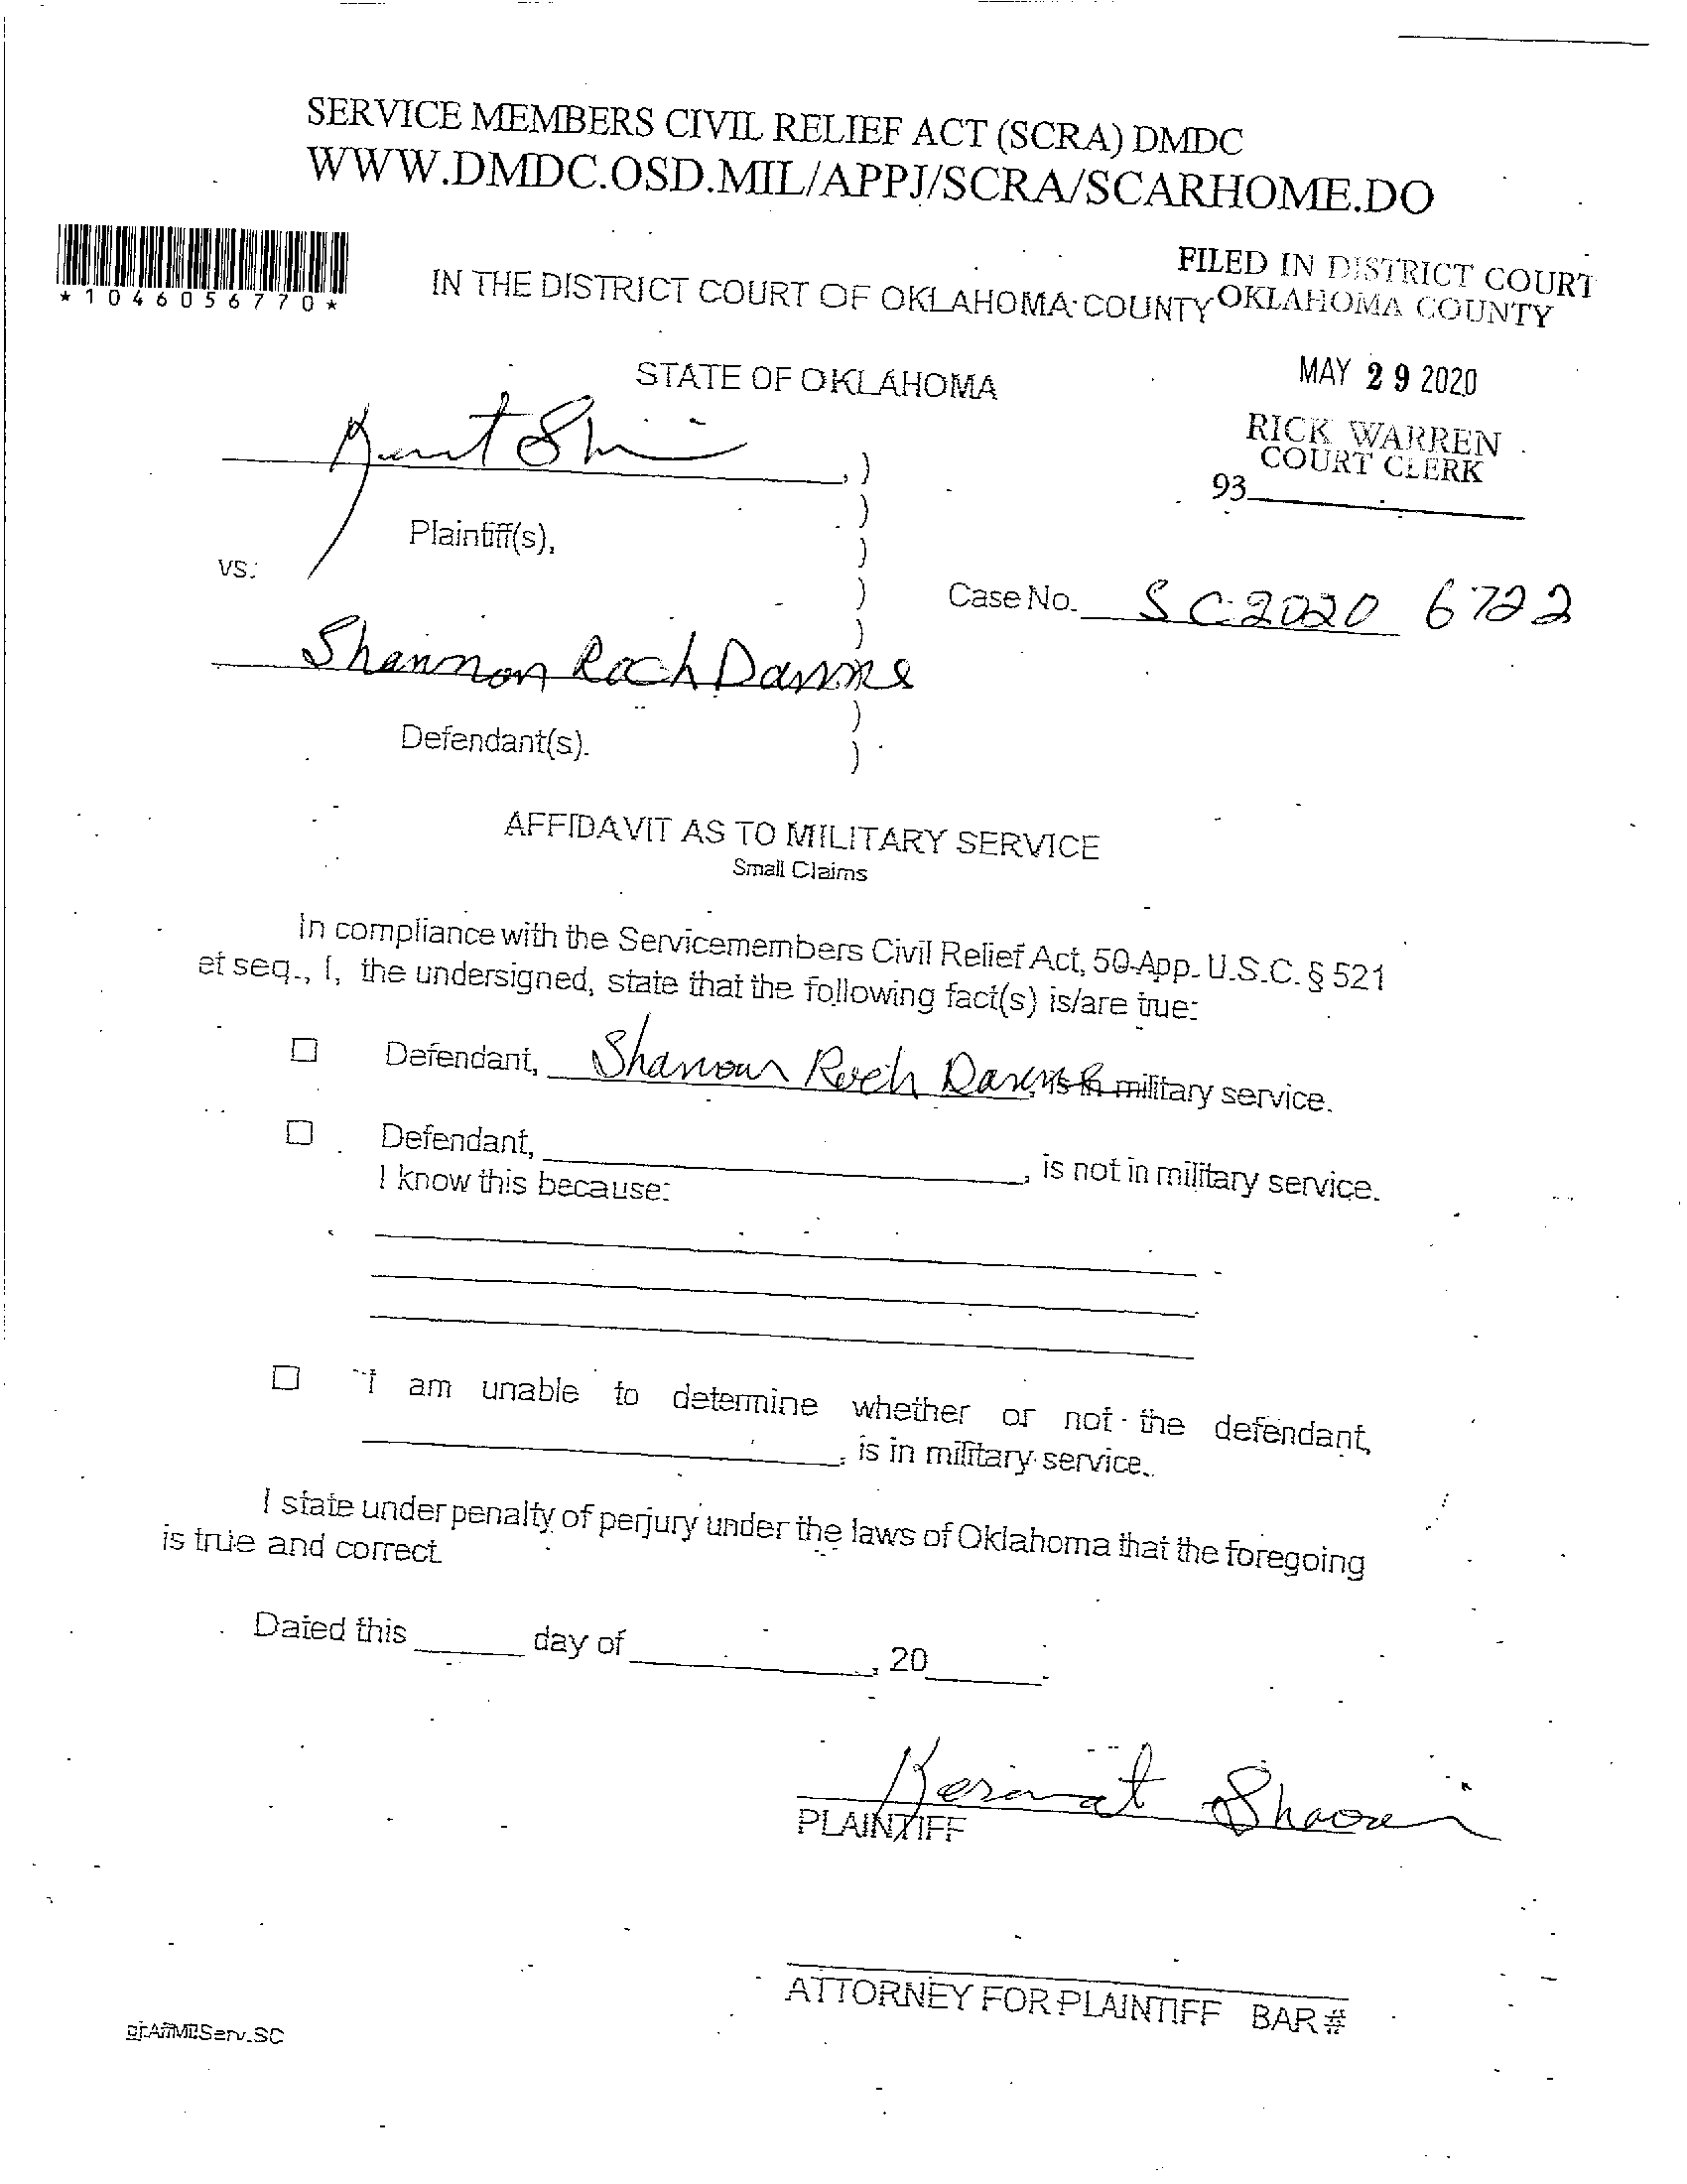 SERVICE MEMBERS CIVIL RELIEF ACT (SCRA) DMDC
WWW.DMDC.OSD.MIL/APPJ/SCRA/SCARHOME.DO
*1046056770*
IN THE DISTRICT COURT OF OKLAHOMA COUNTY
FILED IN DISTRICT COURT
OKLAHOMA COUNTY
STATE OF OKLAHOMA
MAY 29 2020
RICK WARREN
COURT CLERK
93
, )
Plaintiff(s),
vs.
Case No. SC 2020 6722
Shannon Roch
Defendant(s).
AFFIDAVIT AS TO MILITARY SERVICE
Small Claims
In compliance with the Servicemembers Civil Relief Act, 50 App. U.S.C. § 521
et seq., I, the undersigned, state that the following fact(s) is/are true:
☐ Defendant, Shannon Roch , is in military service.
☐ Defendant, , is not in military service.
I know this because:
☐ I am unable to determine whether or not the defendant,
, is in military service.
I state under penalty of perjury under the laws of Oklahoma that the foregoing
is true and correct.
Dated this day of , 20 .
PLAINTIFF
ATTORNEY FOR PLAINTIFF BAR #